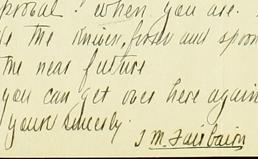 probal? When you are.
the Knives, forks and spoon
the near future
you can get over here again
yours sincerely.
J M. Fairbairn